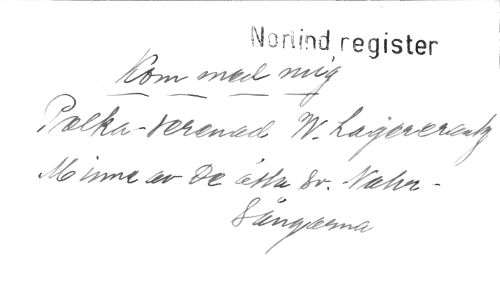 Norlind register
Kom med mig
Polka-serenad W. Lagercrantz
Minne av De åtta Sv. Natur-
Sångarna